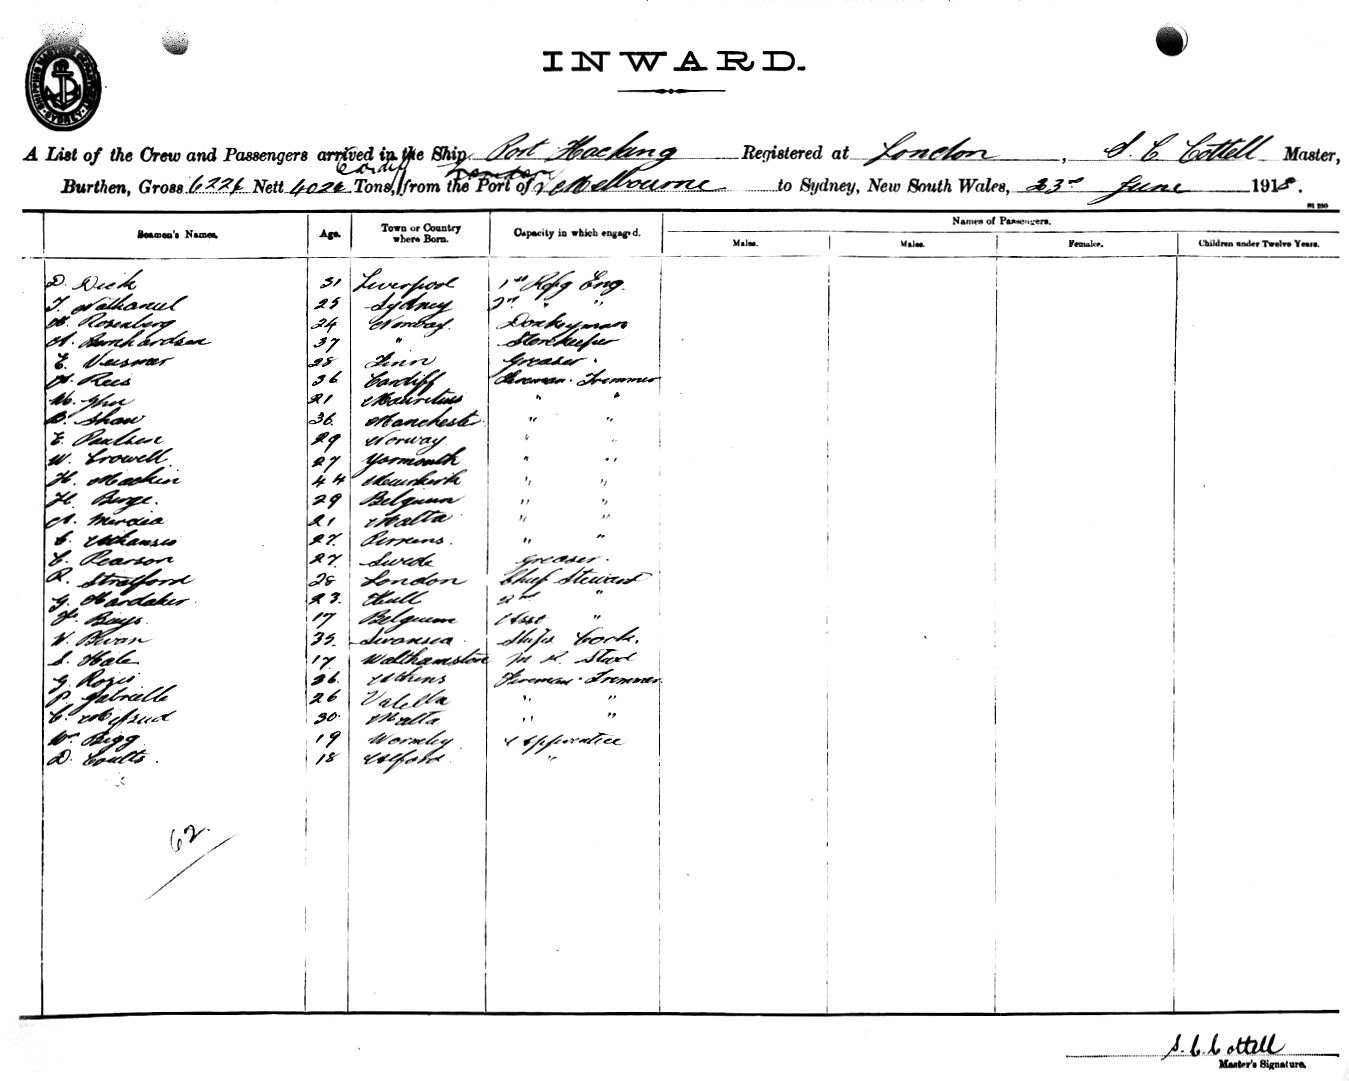 INWARD.
SHIPPING MASTERS DEPARTMENT SYDNEY
A List of the Crew and Passengers arrived in the Ship Port Hacking Registered at London, S. C. Cottell Master,
Cardiff London
Burthen, Gross 6226 Nett 4026 Tons, from the Port of & Melbourne to Sydney, New South Wales, 23rd June 1918.
Seamen's Names. Age. Town or Country where Born. Capacity in which engaged. Names of Passengers.
Males. Males. Females. Children under Twelve Years.
D. Dick 31 Liverpool 1st Rfg Eng.
T. Nathaniel 25 Sydney 2nd " "
Rosenberg 24 Norway. Donkeyman
A. Bernhardsen 37 " Storekeeper
E. 28 Finn Greaser.
Rees 36 Cardiff Fireman. Trimmer
21 Mauritius " "
B. Shaw 36. Manchester " "
E. Paulsen 29 Norway " "
W. Crowell. 27 Yarmouth " "
H. Mackin 44 " "
H. Berge. 29 Belgium " "
A. 21 Malta " "
C. 27. " "
C. Pearson 27. Swede Greaser.
R. Stratford 28 London Chief Steward
G. Hardaker. 23. Hull 2nd "
F. Bays. 17 Belgium Asst "
W. Bevan 35. Swansea. Ships Cook.
S. Hale 17. Walthamstow M. R. Stwd
G. 26. Athens Fireman. Trimmer.
P. Gabrielle 26 Valella " "
C. Mifsud 30. Malta " "
Wm. Bigg 19 Wormley Apprentice
D. Coutts. 18 Ilford. "
62.
S. C. Cottell
Master's Signature.